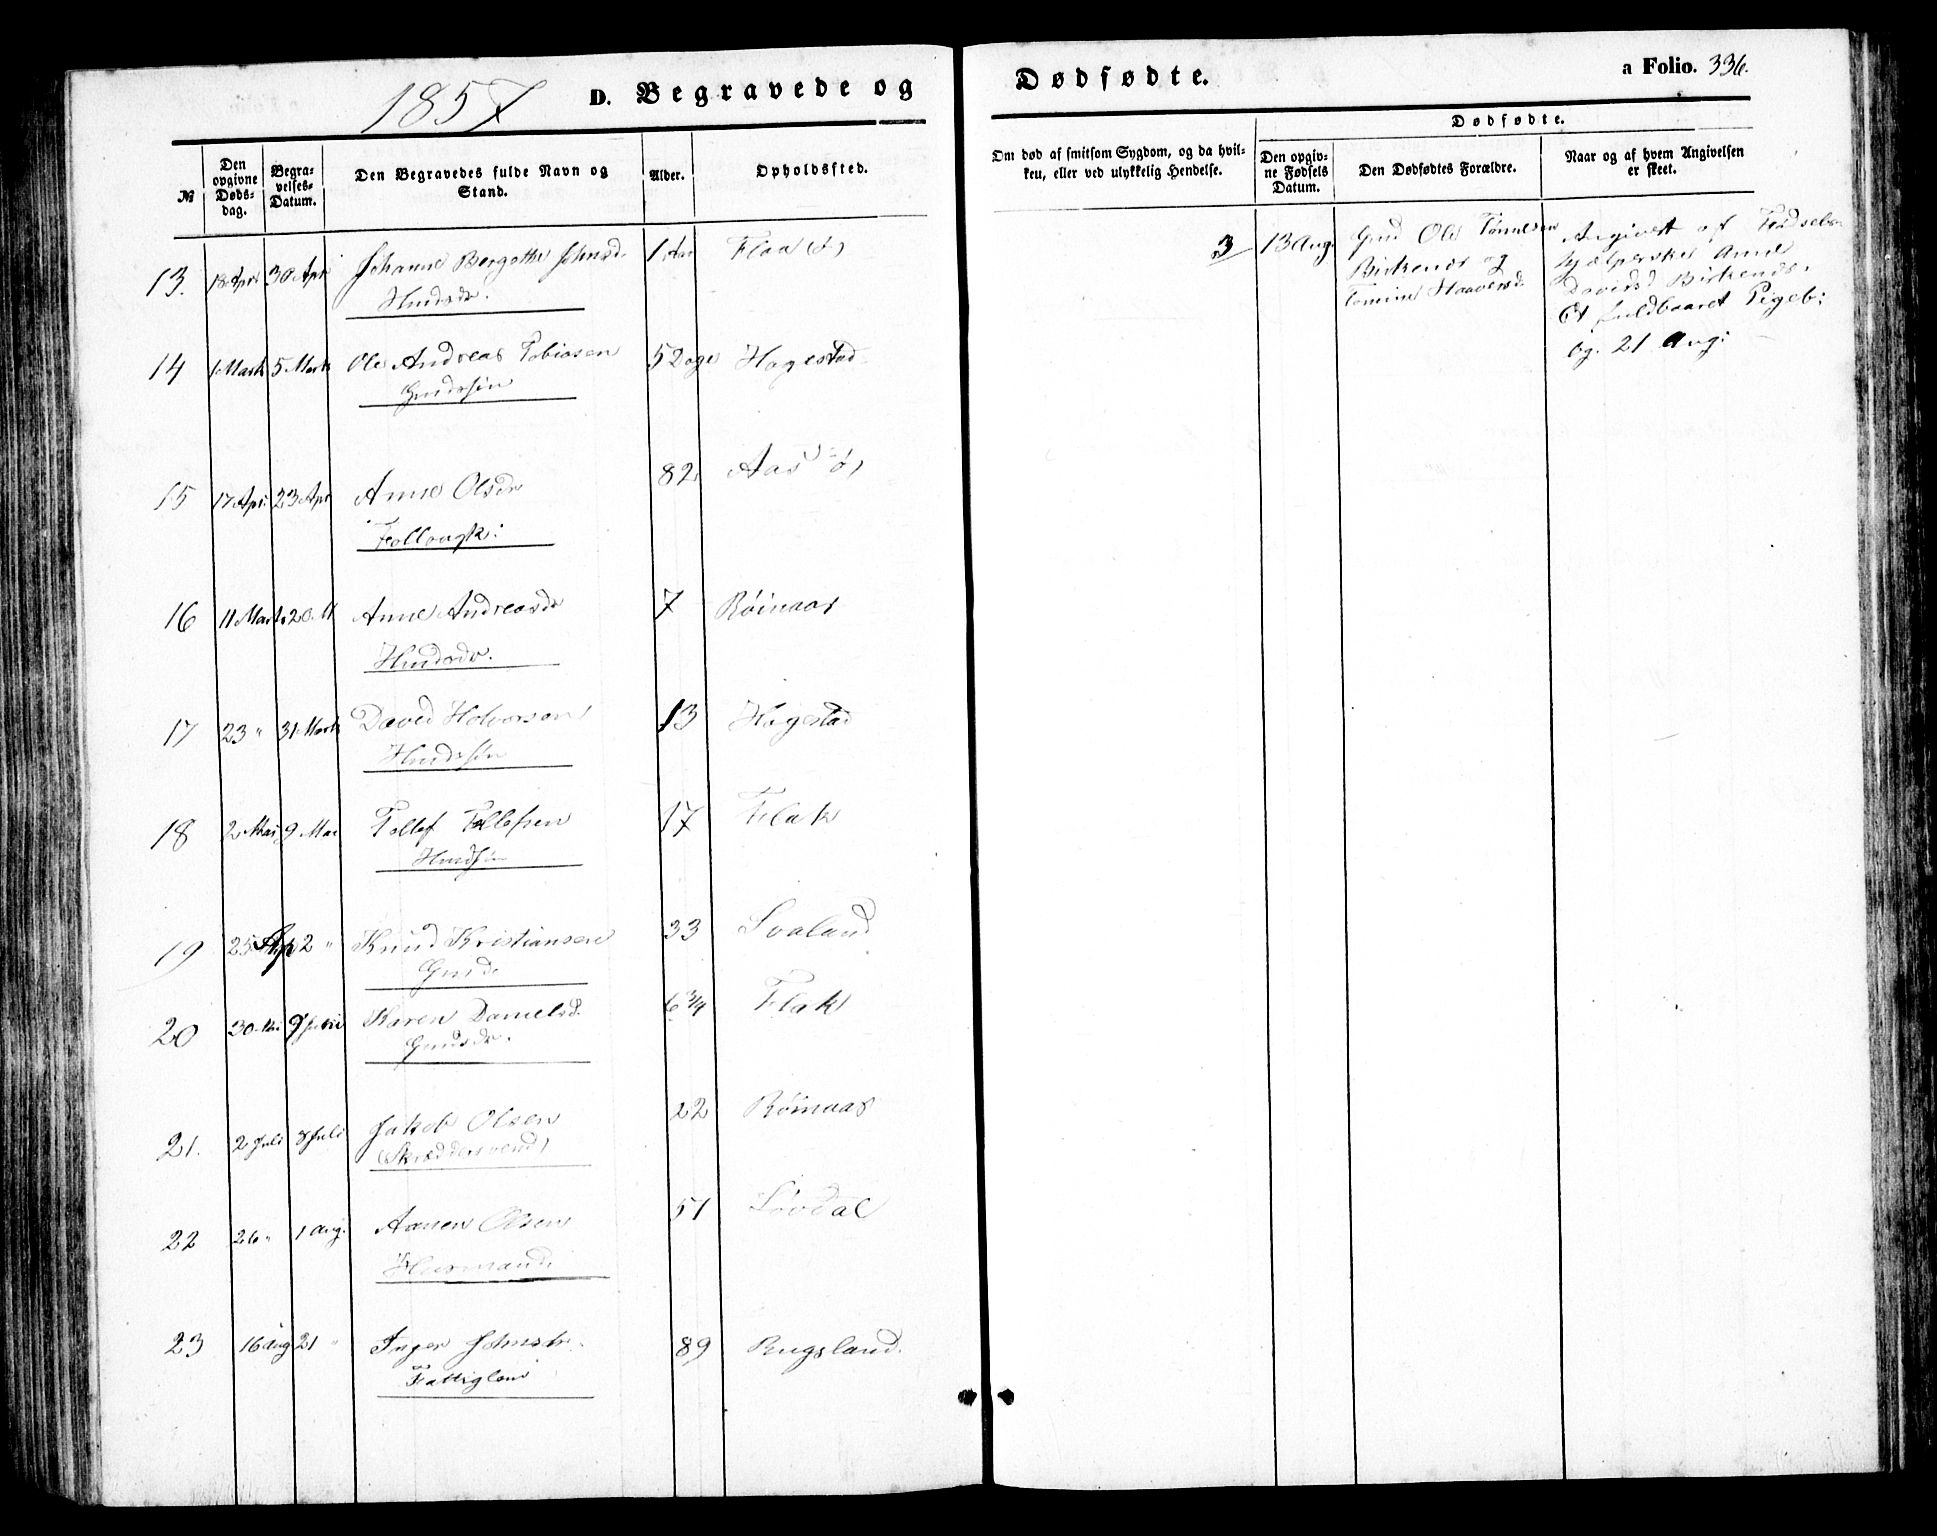 1857 D. Begravede og
№
Den opgivne Dødsdag.
Begravelses-Datum.
Den Begravedes fulde Navn og Stand.
Alder.
Opholdssted.
13. 18 Apr 30 Apr Johanne Bergethe Johnsd. 1 Aar Flaa
Husdr.
14 1 Marts 5 Marts Ole Andreas Tobiasen 5 Uge Hagestad
Gmdssøn
15 17 Apr. 23 Apr Anne Olsdr 82 Aas
Follougk:
16 11 Marts 20 M Anne Andreasdr 7 Röinaas
Hmdsdr.
17 23 " 31 Marts David Halvorsen 13 Hagestad
Hmdssøn
18 2 Mai 9 Mai Tellef Tellefsen 17 Flak
Hmdssøn
19 25 Ap 2 " Knud Kristiansen 33 Svaland
Gmd.
20 30 9 Juni Karen Danielsd. 6 3/4 Flak
Gmdsdr.
21. 2 Juli 8 Juli Jakob Olsen 22 Röinaas
(Skræddersvend)
22 26 " 1 Aug. Aanen Olsen 51 Løvdal
Husmand.
23 16 Aug 21 " Inger Johnsdr. 89 Rugsland.
Fattiglem
Dødfødte.
a Folio. 336.
Om død af smitsom Sygdom, og da hvilken, eller ved ulykkelig Hendelse.
Dødfødte.
Den opgivne Fødsels Datum.
Den Dødfødtes Forældre.
Naar og af hvem Angivelsen er skeet.
3 13 Aug. Gmd Ole Tønnesen
Birkenes og
Tomine Haavorsd.
Angivet af Fødsels
hjælperske Anne
Davidsd Birkenes.
Et fuldbaaret Pigeb:
bg. 21 Aug: